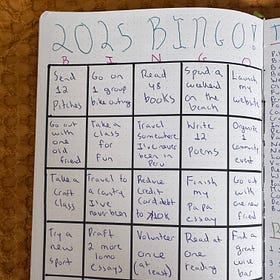 2025 BINGO!
B I N G O
Send 12 Pitches
Go on 1 group bike outing
Read 48 books
Spend a weekend on the beach
Launch my website
Go out with one old friend
Take a class for fun
Travel somewhere I've never been in Peru
Write 12 poems
Organize 1 community event
Take a craft class
Travel to a country I've never been
Reduce credit card debt to
Finish my Papa essay
Go out with one new friend
Try a new sport
Draft 2 more long essays
Volunteer once (at least)
Read at one reading
Find a great wine bar